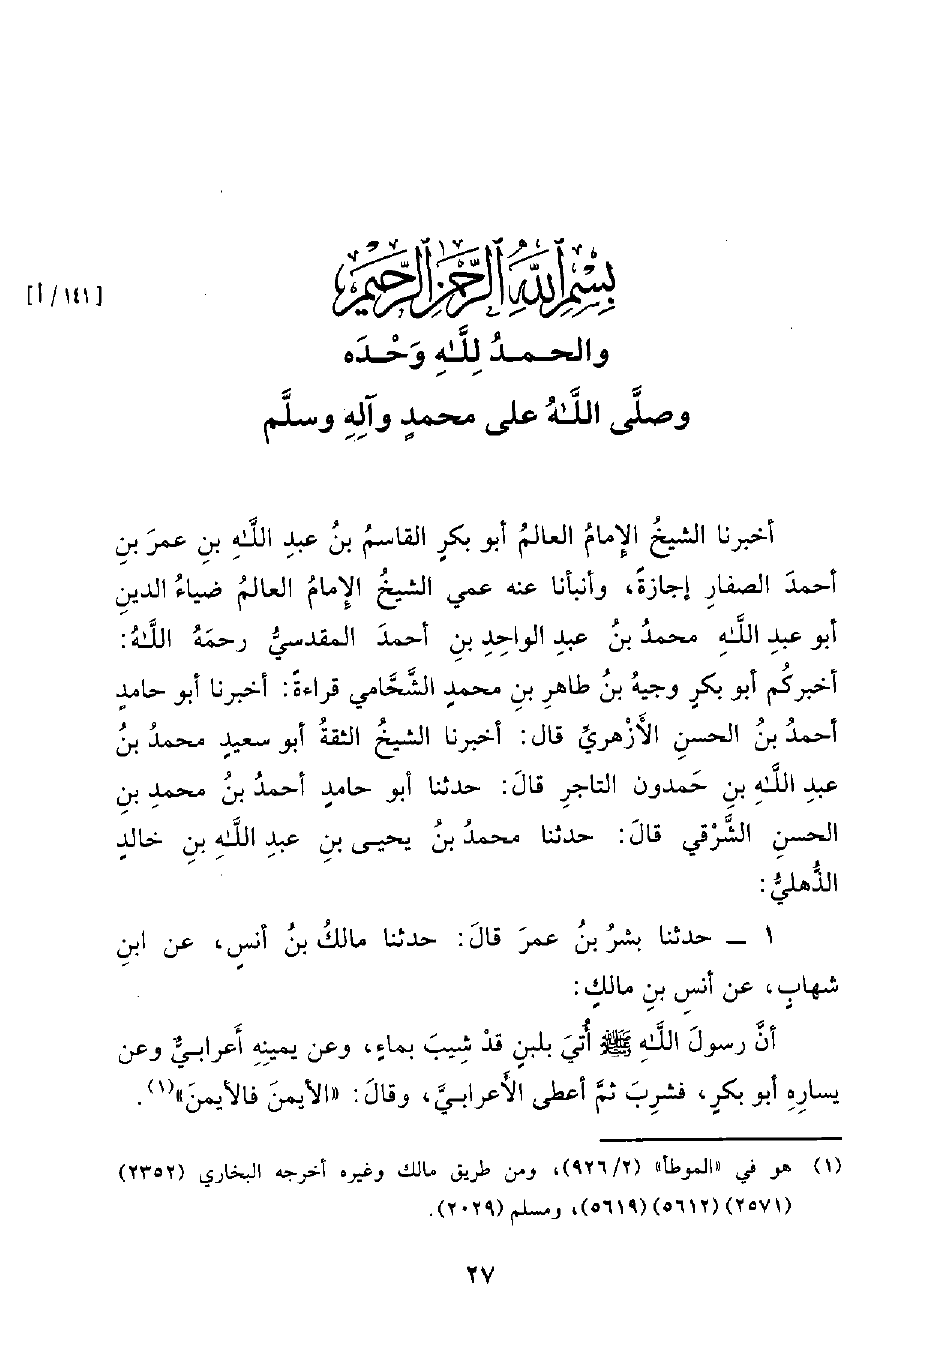 بِسْمِ اللَّهِ الرَّحْمَنِ الرَّحِيمِ
[١٤١/أ]
والحـمـدُ لِلَّهِ وَحْـدَه
وصلَّى اللَّهُ على محمدٍ وآلِهِ وسلَّم
أخبرنا الشيخُ الإمامُ العالمُ أبو بكرٍ القاسمُ بنُ عبدِ اللَّهِ بنِ عمرَ بنِ
أحمدَ الصفارِ إجازةً، وأنبأنا عنه عمي الشيخُ الإمامُ العالمُ ضياءُ الدينِ
أبو عبدِ اللَّهِ محمدُ بنُ عبدِ الواحِدِ بنِ أحمدَ المقدسيُّ رحمَهُ اللَّهُ:
أخبركُم أبو بكرٍ وجيهُ بنُ طاهرِ بنِ محمدٍ الشَّحَّامي قراءةً: أخبرنا أبو حامدٍ
أحمدُ بنُ الحسنِ الأَزْهريُّ قال: أخبرنا الشيخُ الثقةُ أبو سعيدٍ محمدُ بنُ
عبدِ اللَّهِ بنِ حَمدون التاجرِ قالَ: حدثنا أبو حامدٍ أحمدُ بنُ محمدِ بنِ
الحسنِ الشَّرْقي قالَ: حدثنا محمدُ بنُ يحيـى بنِ عبدِ اللَّهِ بنِ خالدٍ
الذُّهليُّ:
١ ــ حدثنا بشرُ بنُ عمرَ قالَ: حدثنا مالكُ بنُ أنسٍ، عن ابنِ
شهابٍ، عن أنسِ بنِ مالكٍ:
أنَّ رسولَ اللَّهِ ﷺ أُتيَ بلبنٍ قدْ شِيبَ بماءٍ، وعن يمينِهِ أَعرابـيٌّ وعن
يسارِهِ أبو بكرٍ، فشرِبَ ثمَّ أعطى الأَعرابـيَّ، وقالَ: «الأيمنَ فالأيمنَ»(١).
(١) هو في «الموطأ» (٩٢٦/٢)، ومن طريق مالك وغيره أخرجه البخاري (٢٣٥٢)
(٢٥٧١) (٥٦١٢) (٥٦١٩)، ومسلم (٢٠٢٩).
٢٧